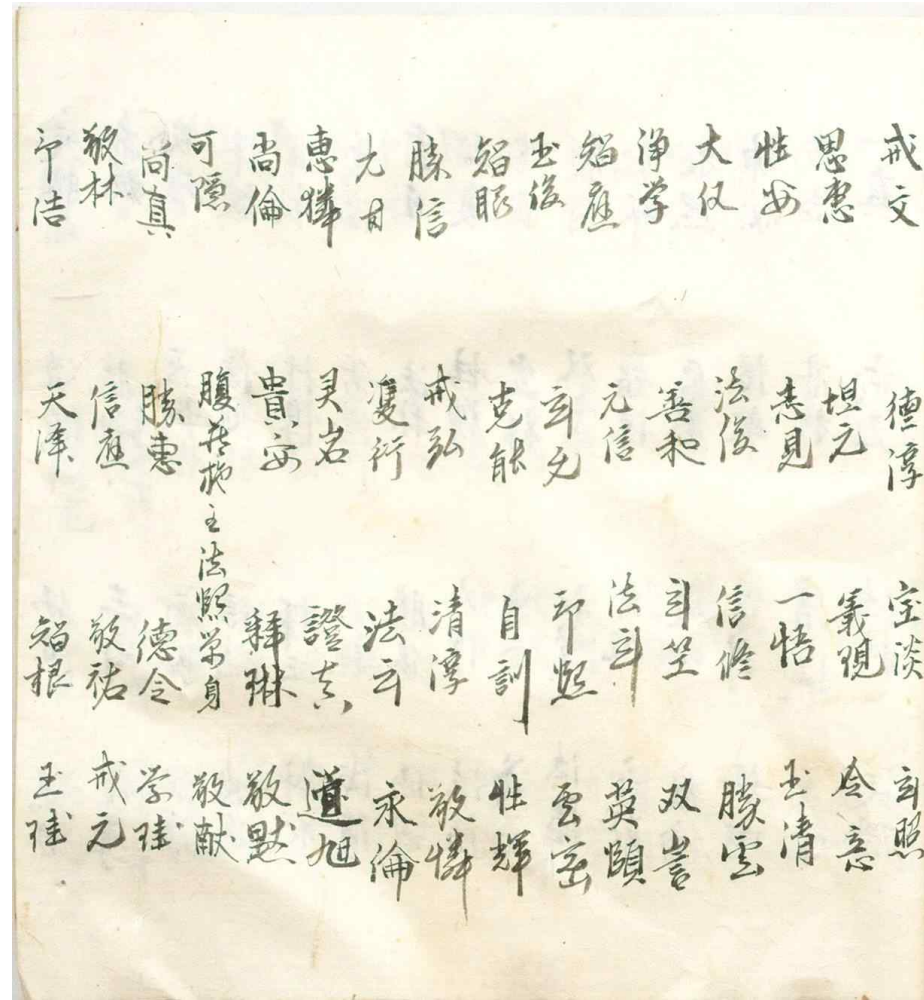 戒文 德淳 空淡 玄照
思惠 坦元 義現 令意
性安 志見 一悟 玉清
大仪 法俊 信修 勝雲
淨学 善和 玄空 双岩
智應 元信 法玄 英頤
玉俊 玄元 印熙 雲密
智眼 克能 自訓 性輝
勝信 戒弘 清淳 敬憐
元甘 隻行 法玄 永倫
惠擇 灵岩 證真 道旭
尚倫 貴安 釋琳 敬默
可隱 腹 施主法熙 身 敬献
尚真 勝惠 德令 学珪
敬林 信應 敬祐 戒元
印洁 天澤 智根 玉珪